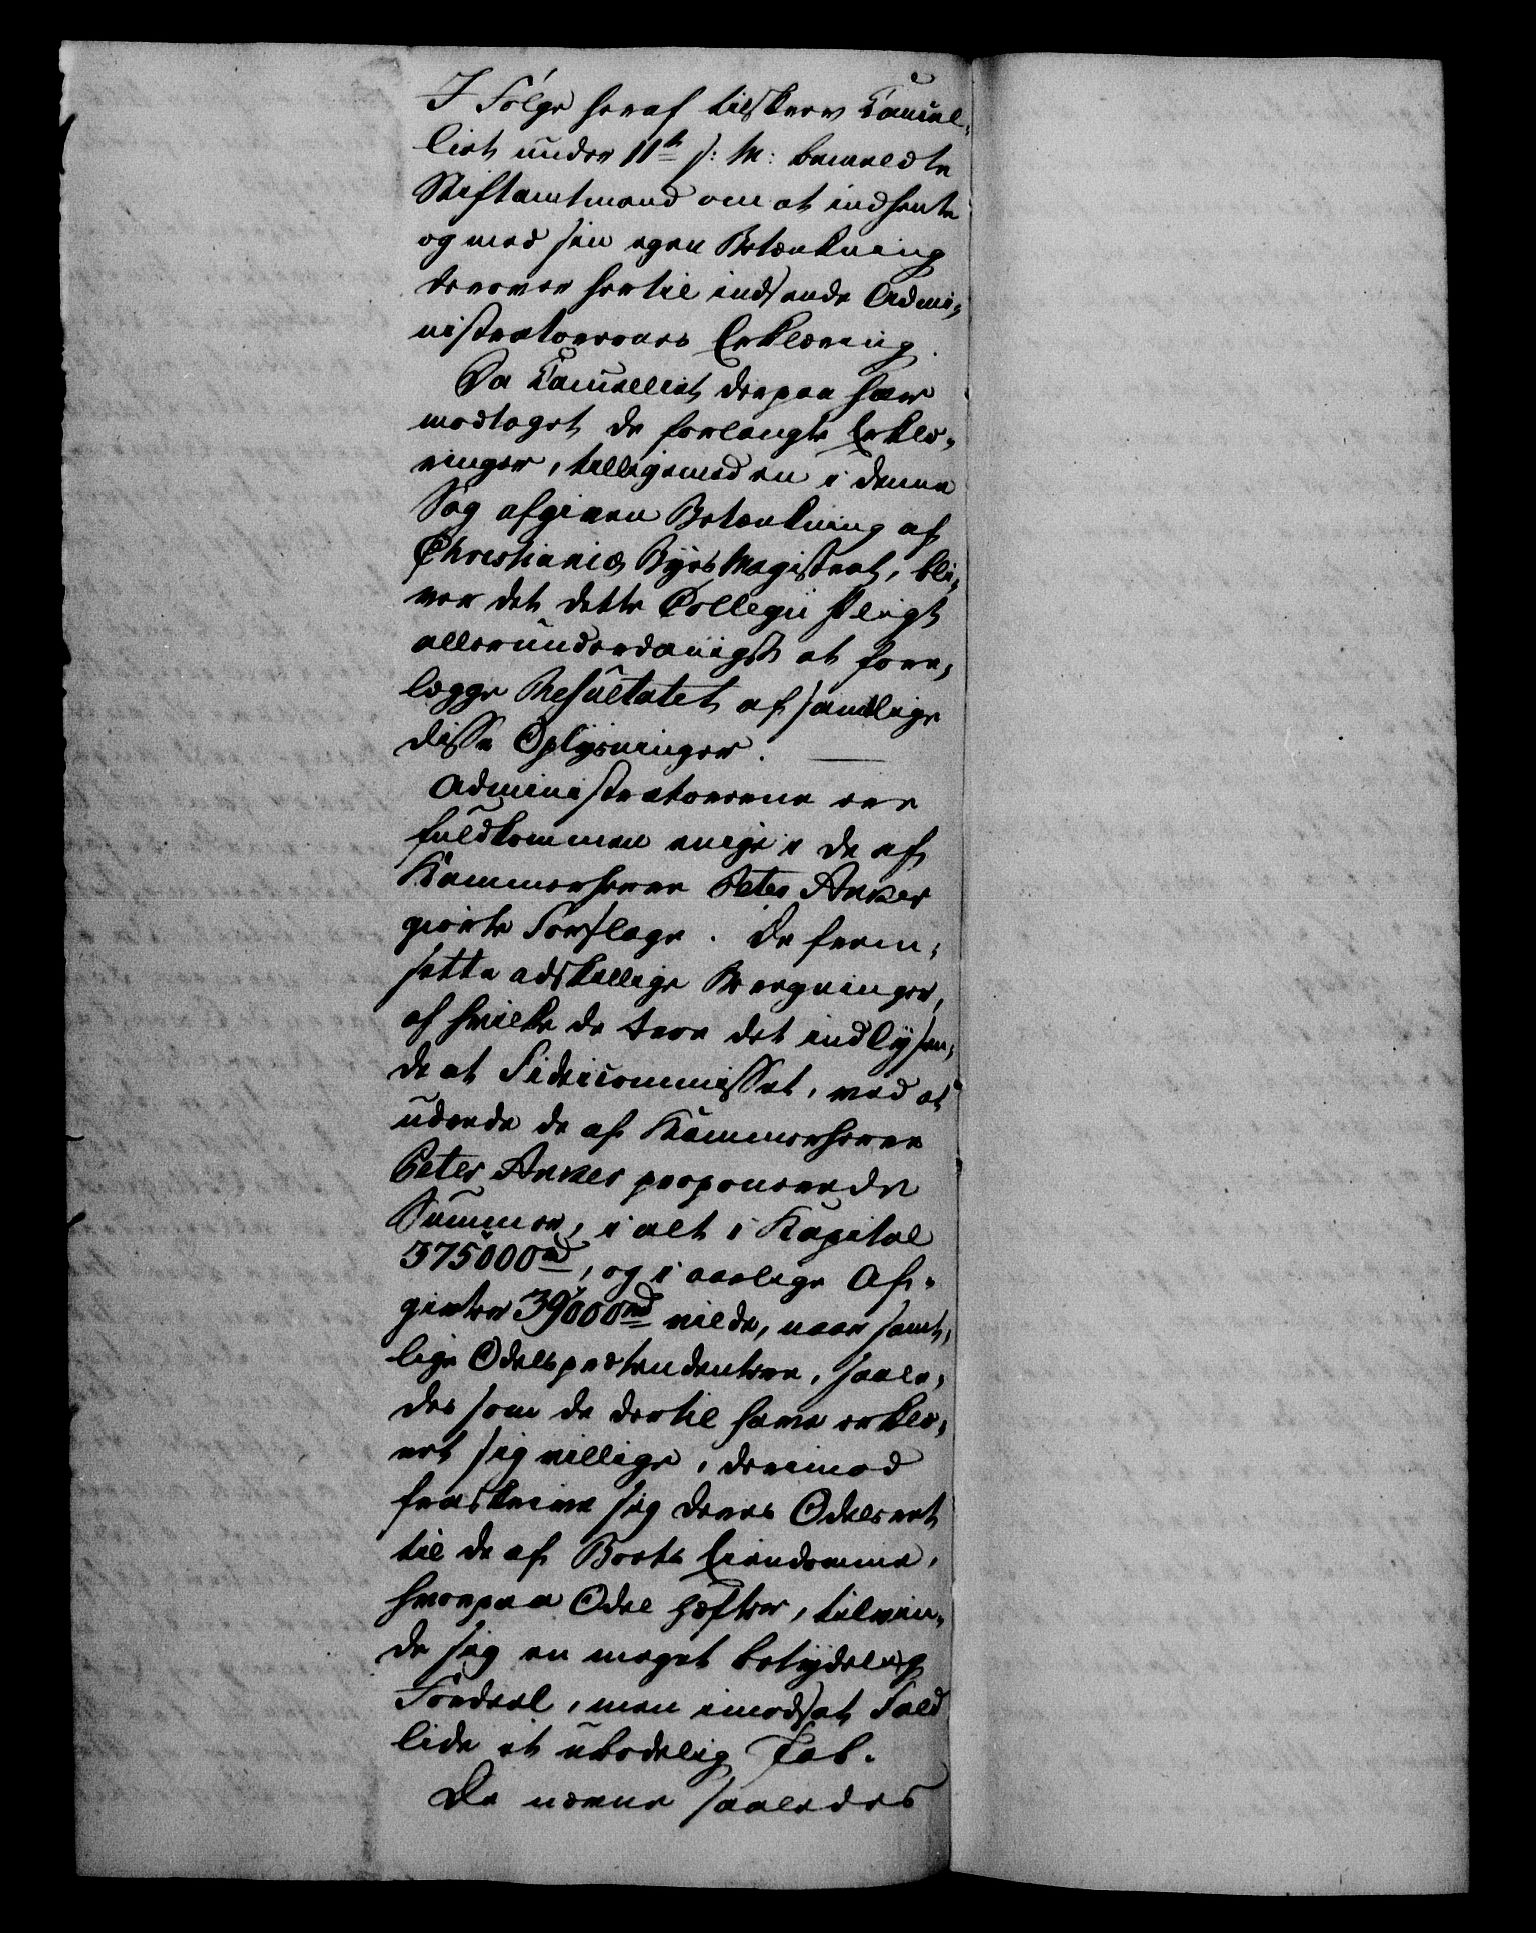 I Følge heraf tilskrev Cancel-
liet under 11te s: M: bemeldte
Stiftamtmand om at indhente
og med sin egen Betænkning
derover hertil indsende Admi-
nistratorernes Erklæring.
Da Cancelliet derpaa har
modtaget de forlangte Erklæ-
ringer, tilligemed en i denne
Sag afgiven Betænkning af
Christiania Byes Magistrat, bli-
ver det dette Collegii Pligt
allerunderdanigst at fore-
lægge Resultatet af samtlige
disse Oplysninger.
Administratorerne ere
fuldkommen enige i de af
Kammerherre Peter Anker
giorte Forslage. De frem-
sætte adskillige Beregninger,
af hvilke de troe det indlysen-
de at Fideicommisset, ved at
udrede de af Kammerherre
Peter Anker proponerede
Summer, i alt i Kapital
375000rd, og i aarlige Af-
givter 39000rd vilde, naar samt-
lige Odelsprætendentere, saale-
des som de dertil have erklæ-
ret sig villige, derimod
fraskrive sig deres Odelsret
til de af Boets Eiendomme,
hvorpaa Odel hæfter, tilven-
de sig en meget betydelig
Fordeel, men i modsat Fald
lide et ubodelig Tab.
De nævne saaledes